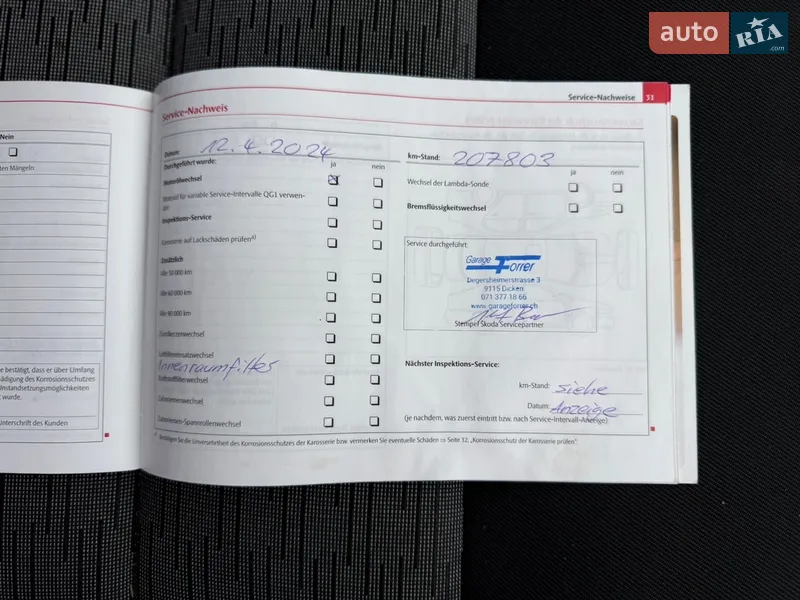 auto RIA.com
Service-Nachweise 31
Service-Nachweis
Nein
ten Mängeln:
e bestätigt, dass er über Umfang
ädigung des Korrosionsschutzes
nstandsetzungsmöglichkeiten
t wurde.
nterschrift des Kunden
Datum: 12.4.2024
Durchgeführt wurde: ja nein
Motorölwechsel
Motoröl für variable Service-Intervalle QG1 verwen-
det
Inspektions-Service
Karosserie auf Lackschäden prüfen a)
Zusätzlich
Alle 30 000 km
Alle 60 000 km
Alle 90 000 km
Zündkerzenwechsel
Luftfiltereinsatzwechsel
Innenraumfilter
Kraftstofffilterwechsel
Zahnriemenwechsel
Zahnriemen-Spannrollenwechsel
km-Stand: 207803
ja nein
Wechsel der Lambda-Sonde
Bremsflüssigkeitswechsel
Service durchgeführt:
Garage Forrer
Degersheimerstrasse 3
9115 Dicken
071 377 18 66
www.garageforrer.ch
Stempel Škoda Servicepartner
Nächster Inspektions-Service:
km-Stand: siehe
Datum: Anzeige
(je nachdem, was zuerst eintritt bzw. nach Service-Intervall-Anzeige)
a) Bestätigen Sie die Unversehrtheit des Korrosionsschutzes der Karosserie bzw. vermerken Sie eventuelle Schäden ⇒ Seite 32, „Korrosionsschutz der Karosserie prüfen".